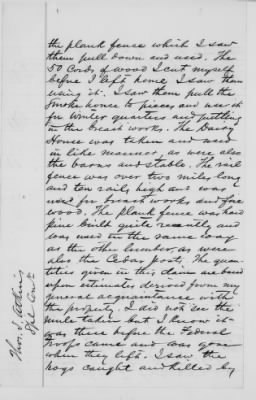 the plank fence which I saw
them pull down and used. The
50 Cords of wood I cut myself
before I left home. I saw them
using it. I saw them pull the
smoke house to pieces and use it
for winter quarters and putting
in the breast works. The Dairy
House was taken and used
in like manner, as were also
the barns and stable. The rail
fence was over two miles long
and ten rails high and was
used for breast works and fire
wood. The plank fence was hard
pine built quite recently, and
was used in the same way
as the other lumber, as were
also the Cedar posts. The quan-
tities given in this claim are based
upon estimates derived from my
general acquaintance with
the property. I did not see the
mule taken but I know it
was there before the Federal
troops came and was gone
when they left. I saw the
hogs caught and killed by
Thos. J. Atkins
Spl. Comr.